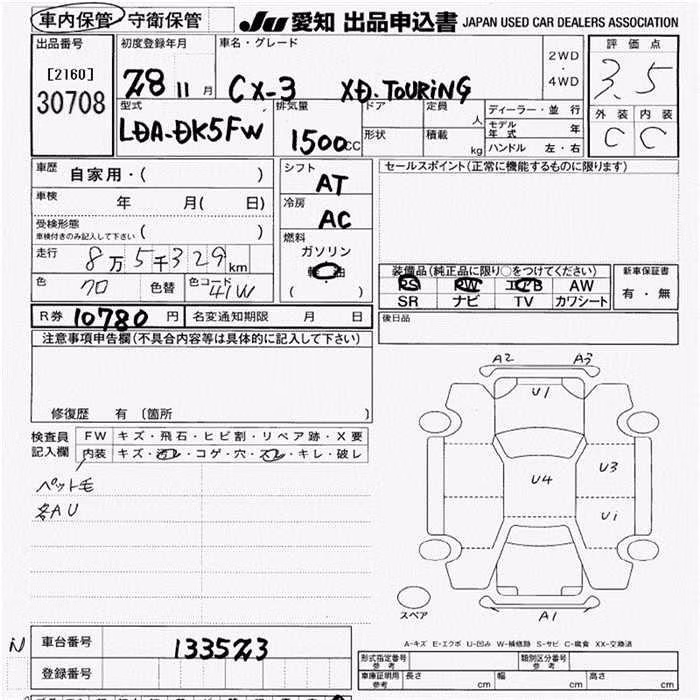 車内保管 守衛保管 JU 愛知 出品申込書 JAPAN USED CAR DEALERS ASSOCIATION
出品番号 [2160] 30708
初度登録年月 28 11 月
車名・グレード CX-3 XD.TOURING
2WD ・ 4WD
評価点 3.5
外装 内装
C C
型式 LDA-DK5FW
排気量 1500cc
ドア 定員 人
形状 積載 kg
ディーラー・並行
モデル年式 年
ハンドル 左・右
車歴 自家用・( )
車検 年 月( 日)
受検形態 車検付きのみ記入して下さい ( )
走行 8万5千329km
色 クロ 色替 色コード 41W
シフト AT
冷房 AC
燃料 ガソリン
軽・油
( )
セールスポイント(正常に機能するものに限ります)
装備品(純正品に限り○をつけてください)
PS PW エアB AW
SR ナビ TV カワシート
新車保証書 有・無
R券 10780 円 名変通知期限 月 日
後日品
注意事項申告欄(不具合内容等は具体的に記入して下さい)
修復歴 有 〔箇所 〕
検査員記入欄
FW キズ・飛石・ヒビ割・リペア跡・X要
内装 キズ・汚レ・コゲ・穴・スレ・キレ・破レ
ペット毛
各AU
A2 A3
U1
U4
U3
U1
A1
スペア
A-キズ E-エクボ U-凹み W-補修跡 S-サビ C-腐食 XX-交換済
車台番号 133523
登録番号
形式指定番号 参考 類別区分番号 参考
車庫証明用 参考 長さ cm 幅 cm 高さ cm